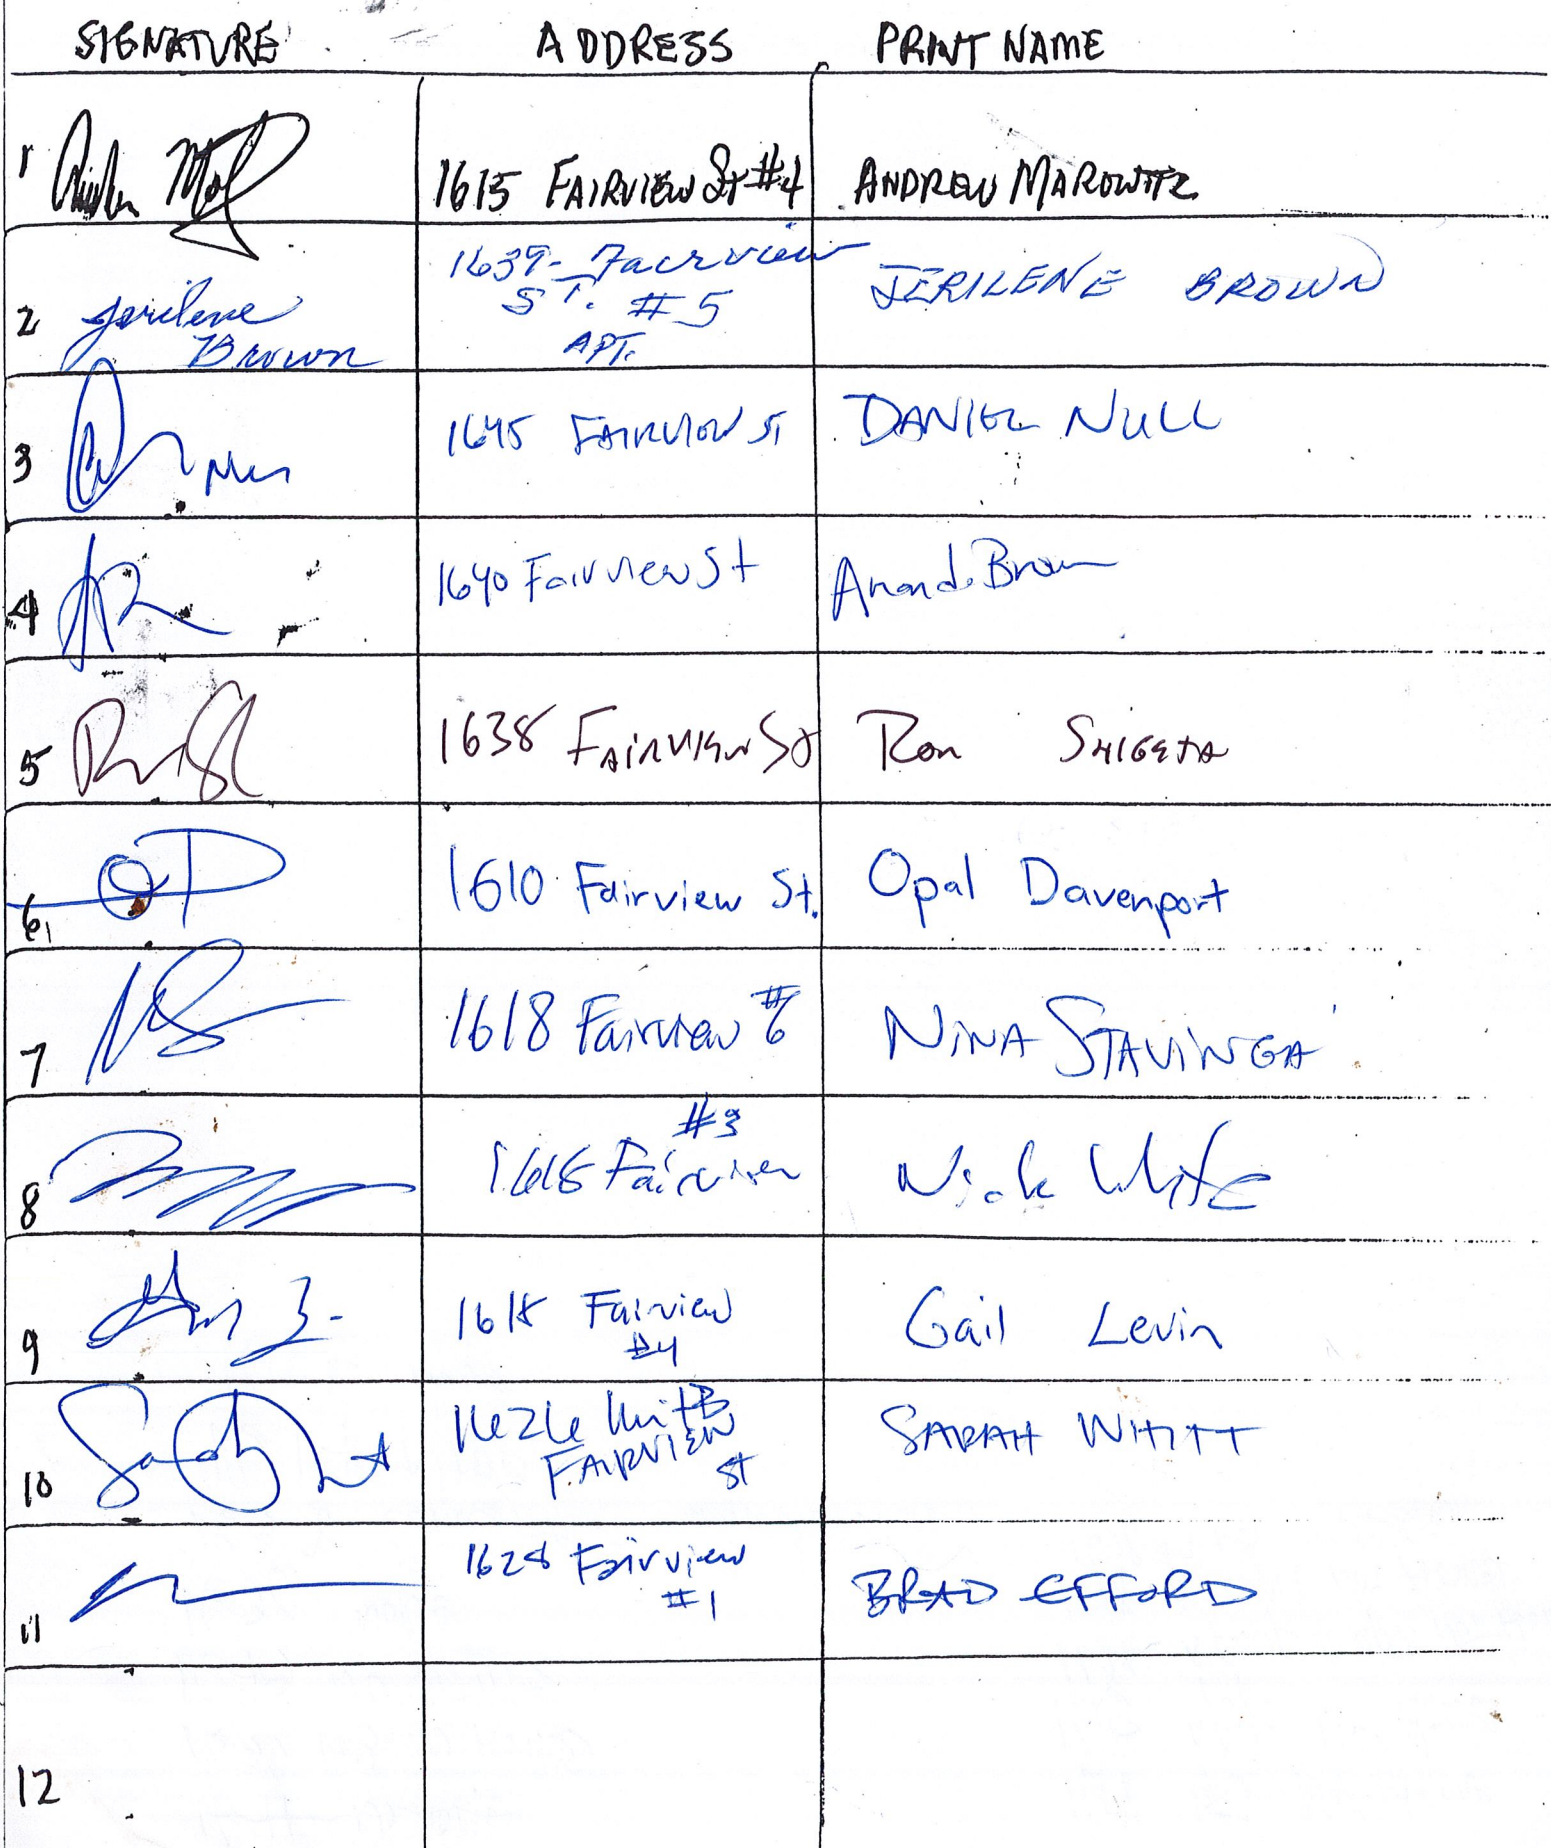 SIGNATURE ADDRESS PRINT NAME
1 1615 FAIRVIEW St #4 ANDREW MAROWITZ
2 Jerilene Brown 1639- Fairview ST. #5 APT. JERILENE BROWN
3 1645 FAIRVIEW ST DANIEL NULL
4 1640 Fairview St Brown
5 1638 FAIRVIEW St Ron SHIGETA
6, OP 1610 Fairview St. Opal Davenport
7 NS 1618 Fairview #6 NINA STAVINGA
8 #3 Fairview Nick White
9 1618 Fairview #4 Gail Levin
10 Sarah 1626 Unit B FAIRVIEW St SARAH WHITT
11 1628 Fairview #1 BRAD EFFORD
12